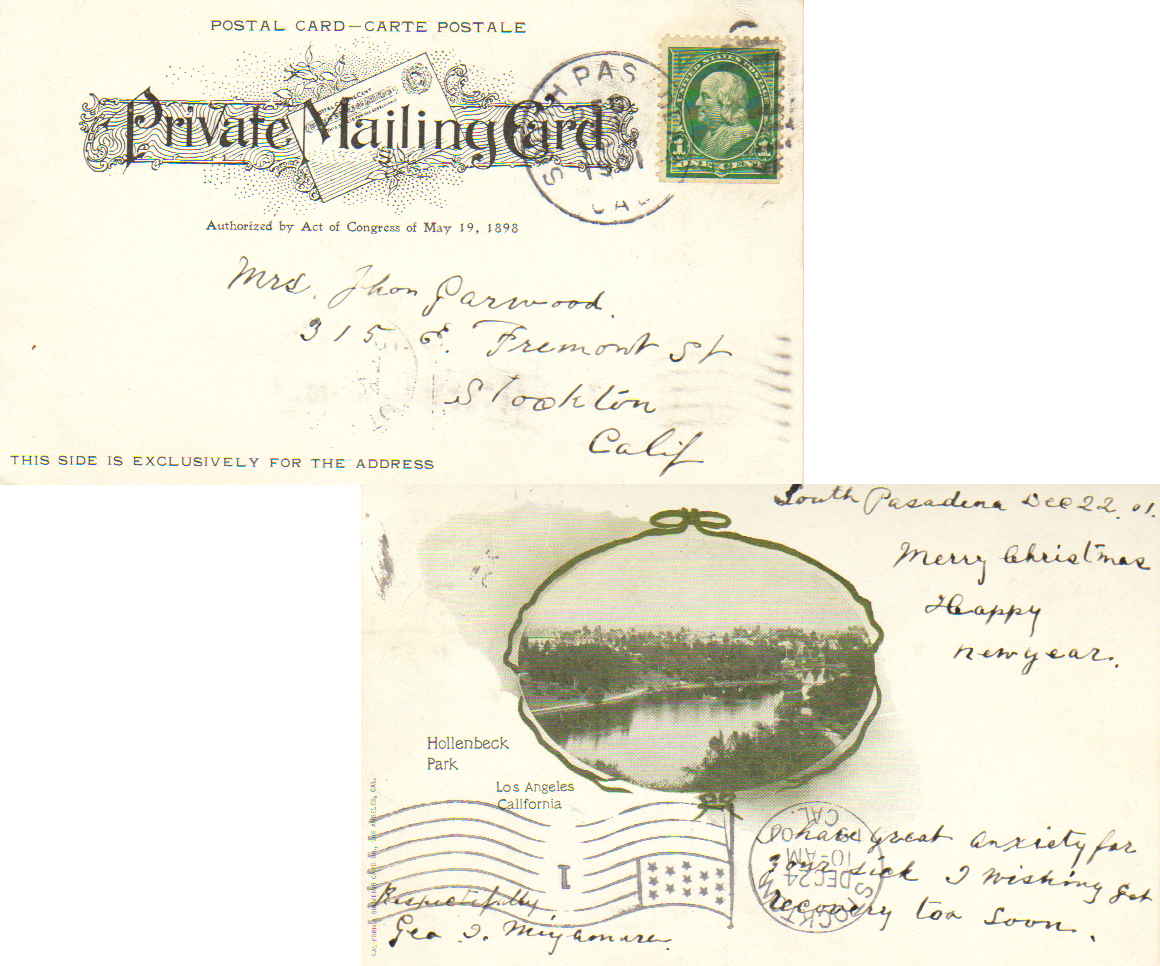 POSTAL CARD—CARTE POSTALE
Private Mailing Card
Authorized by Act of Congress of May 19, 1898
H PAS
1901
CAL
UNITED STATES POSTAGE
1 1
ONE CENT
Mrs. Jhon Garwood.
315 E. Fremont St
Stockton
Calif
THIS SIDE IS EXCLUSIVELY FOR THE ADDRESS
South Pasadena Dec 22. 01.
Merry Christmas
Happy
new year.
Hollenbeck
Park
Los Angeles
California
I have great anxiety for
your sick I wishing get
recovery too soon.
Respectifully
Geo. I. Miyamura.
1
STOCKTON
DEC 24
10-AM
CAL.